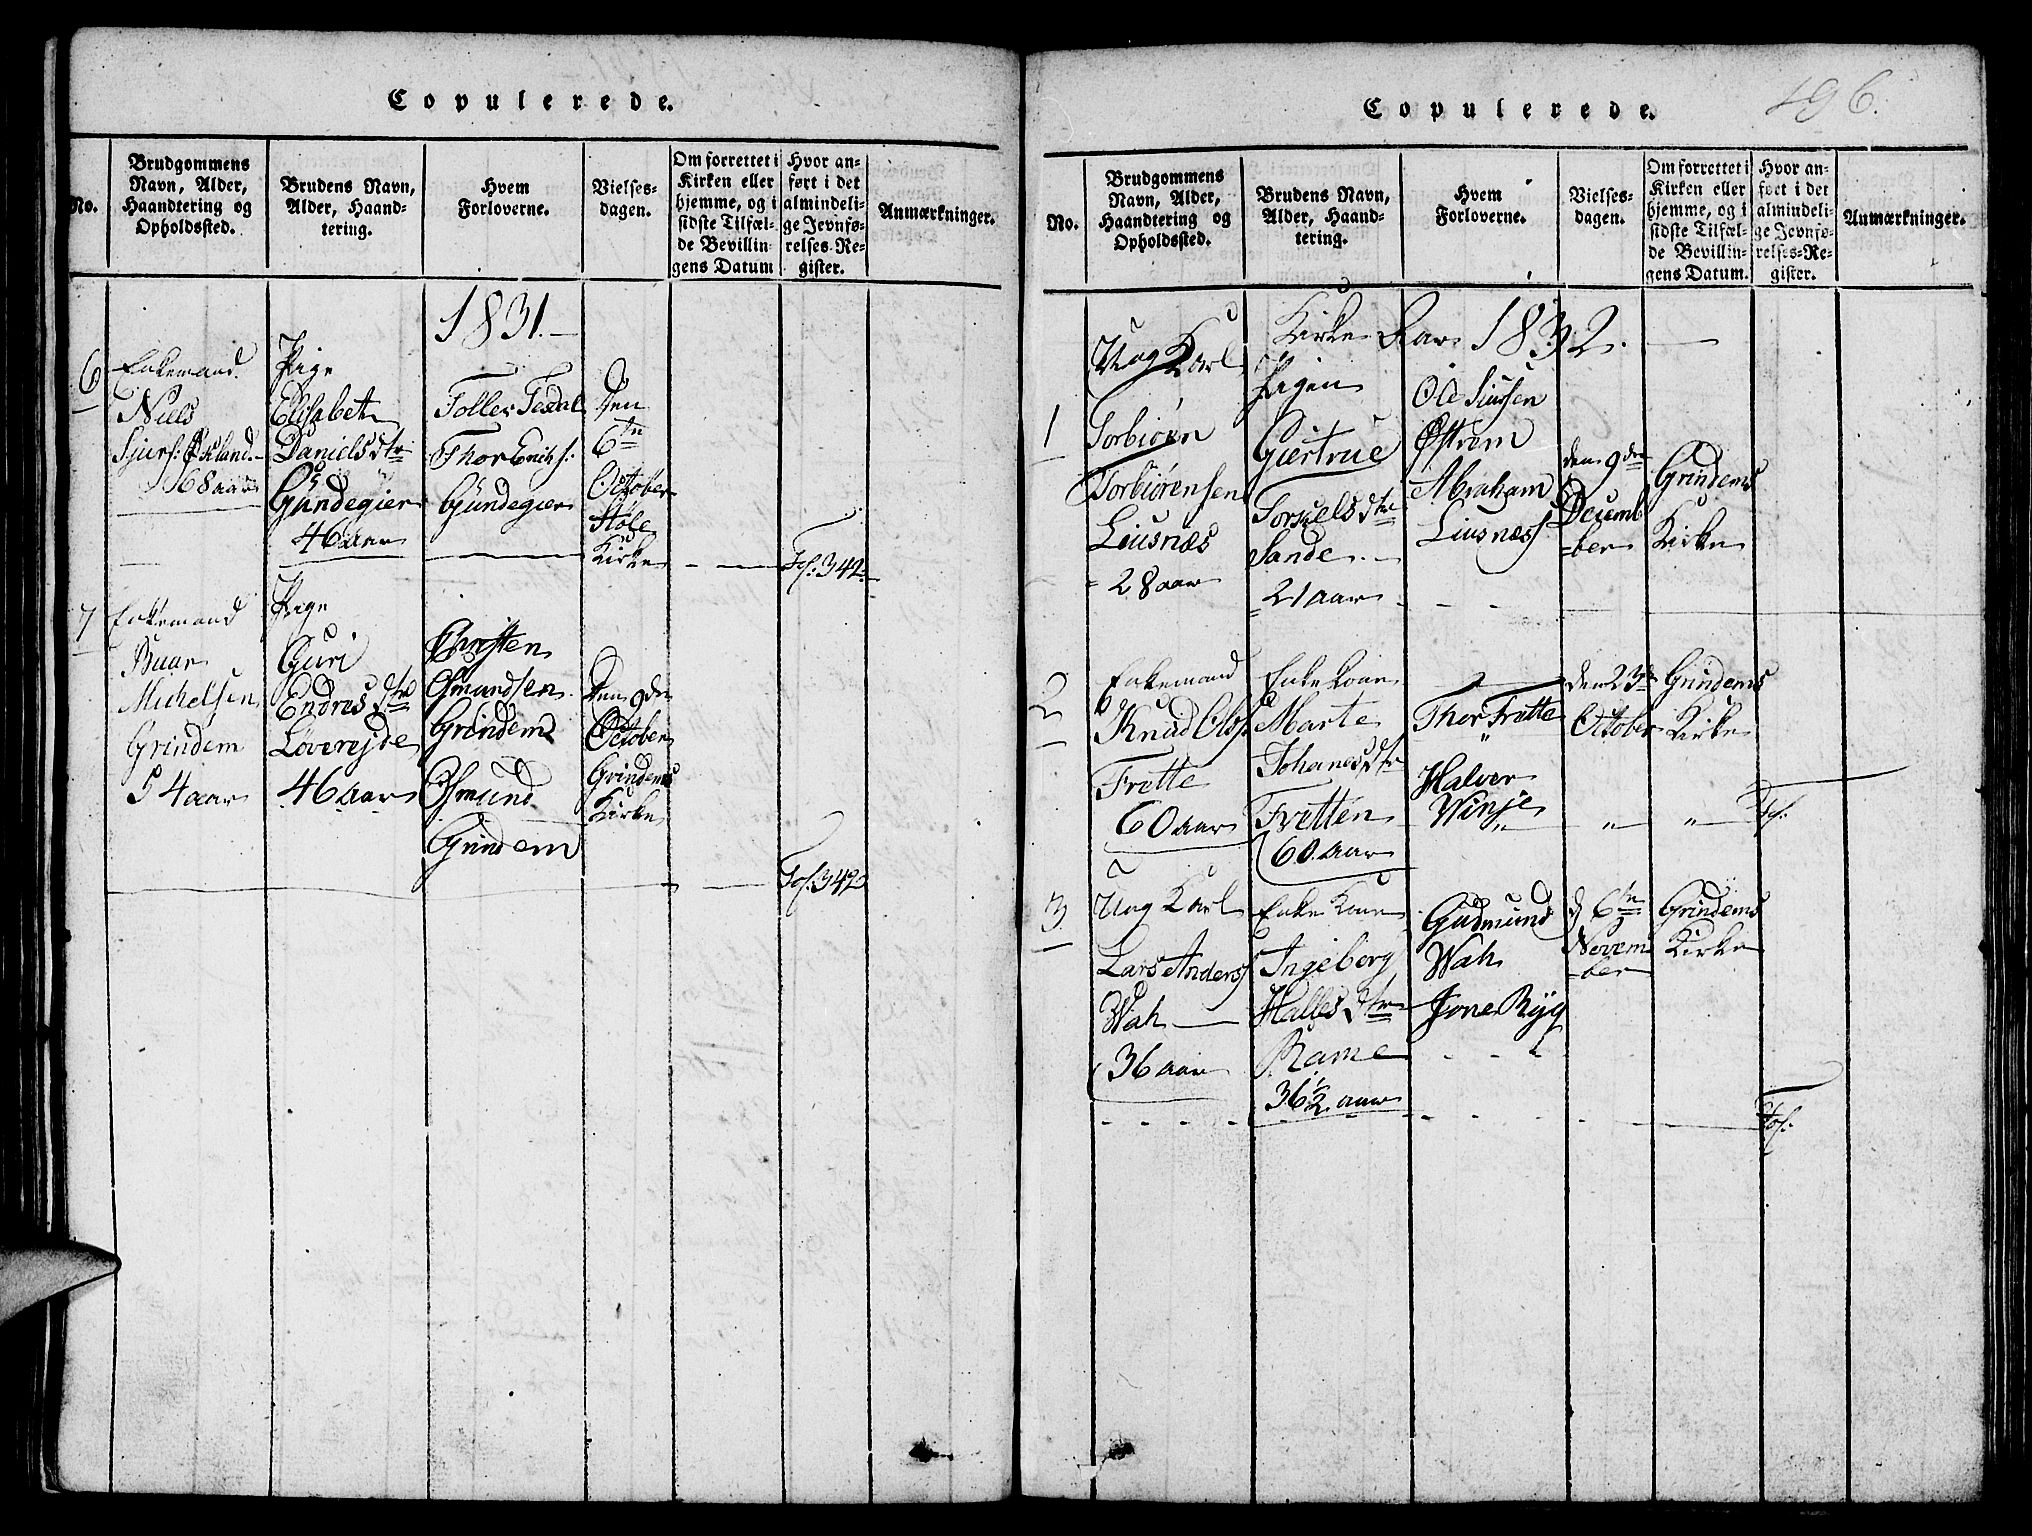 Copulerede.
No.
Brudgommens Navn, Alder, Haandtering og Opholdssted.
Brudens Navn, Alder, Haandtering.
Hvem Forloverne.
Vielsesdagen.
Om forrettet i Kirken eller hjemme, og i sidste Tilfælde Bevillingens Datum
Hvor anført i det almindelige Jevnførelses-Register.
Anmærkninger.
1831.
6
Enkemand
Niels
Sjurs:
68 aar
Pige
Elisabet
Daniels dtr
Gundegier
46 aar
Toller Tesdal
Thor
Gundegier
Den
6te
October
Hole
Kirke
Fol: 342
7
Enkemand
Buar
Michelsen
Grindem
54 aar
Pige
Guri
Endres dtr
Løvereide
46 aar
Christen
Osmundsen
Grindem
Osmund
Grindem
Den 9de
October
Grindems
Kirke
Fol. 342
Copulerede.
196.
No.
Brudgommens Navn, Alder, Haandtering og Opholdssted.
Brudens Navn, Alder, Haandtering.
Hvem Forloverne.
Vielsesdagen.
Om forrettet i Kirken eller hjemme, og i sidste Tilfælde Bevillingens Datum.
Hvor anført i det almindelige Jevnførelses-Register.
Anmærkninger.
Kirke Aar 1832.
1
Ung Karl
Torbiørn
Torbiørensen
Liusnæs
28 aar
Pigen
Giertrue
Torkels dtr
Sande
21 aar
Ole Siursen
Østrem
Abraham
Liusnæs
den 9de
Decemb
=ber
Grindems
Kirke
2
Enkemand
Knud Ols:
Frette
60 aar
Enke Kone
Marte
Johanes dtr
Fretten
60 aar
Thor Frette
Halver
Winje
den 23de
October
Grindems
Kirke
Fol:
3
Ung Karl
Lars Anders:
Wah
36 aar
Enke Kone
Ingeborg
Halles dtr
Rame
36 1/2 aar
Gudmund
Wah
Jone Ryg
d 6te
Novem
=ber
Grindems
Kirke
Fol: